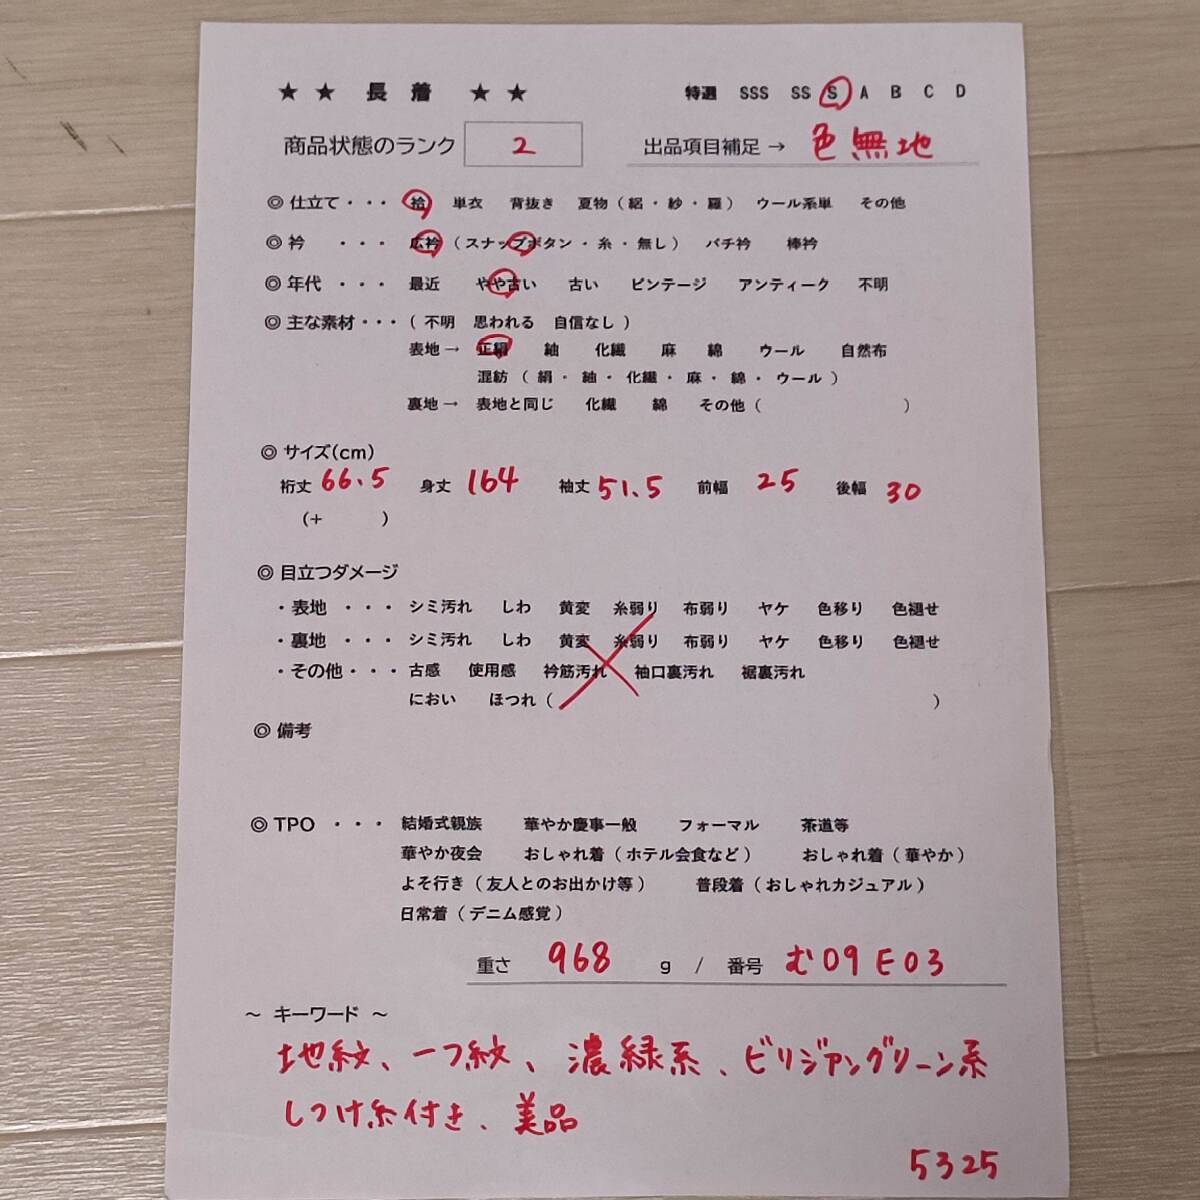 ★ ★ 長 着 ★ ★ 特選 SSS SS S A B C D
商品状態のランク 2 出品項目補足 → 色無地
◎ 仕立て・・・ 袷 単衣 背抜き 夏物（絽・紗・羅） ウール系単 その他
◎ 衿 ・・・ 広衿（スナップボタン・糸・無し） バチ衿 棒衿
◎ 年代 ・・・ 最近 やや古い 古い ビンテージ アンティーク 不明
◎ 主な素材・・・（不明 思われる 自信なし）
表地→ 正絹 紬 化繊 麻 綿 ウール 自然布
混紡（絹・紬・化繊・麻・綿・ウール）
裏地→ 表地と同じ 化繊 綿 その他（ ）
◎ サイズ(cm)
裄丈 66.5 身丈 164 袖丈 51.5 前幅 25 後幅 30
（＋ ）
◎ 目立つダメージ
・表地 ・・・ シミ汚れ しわ 黄変 糸弱り 布弱り ヤケ 色移り 色褪せ
・裏地 ・・・ シミ汚れ しわ 黄変 糸弱り 布弱り ヤケ 色移り 色褪せ
・その他・・・ 古感 使用感 衿筋汚れ 袖口裏汚れ 裾裏汚れ
におい ほつれ（ ）
◎ 備考
◎ TPO ・・・ 結婚式親族 華やか慶事一般 フォーマル 茶道等
華やか夜会 おしゃれ着（ホテル会食など） おしゃれ着（華やか）
よそ行き（友人とのお出かけ等） 普段着（おしゃれカジュアル）
日常着（デニム感覚）
重さ 968 g / 番号 む09E03
～ キーワード ～
地紋、一つ紋、濃緑系、ビリジアングリーン系
しつけ糸付き、美品
5325